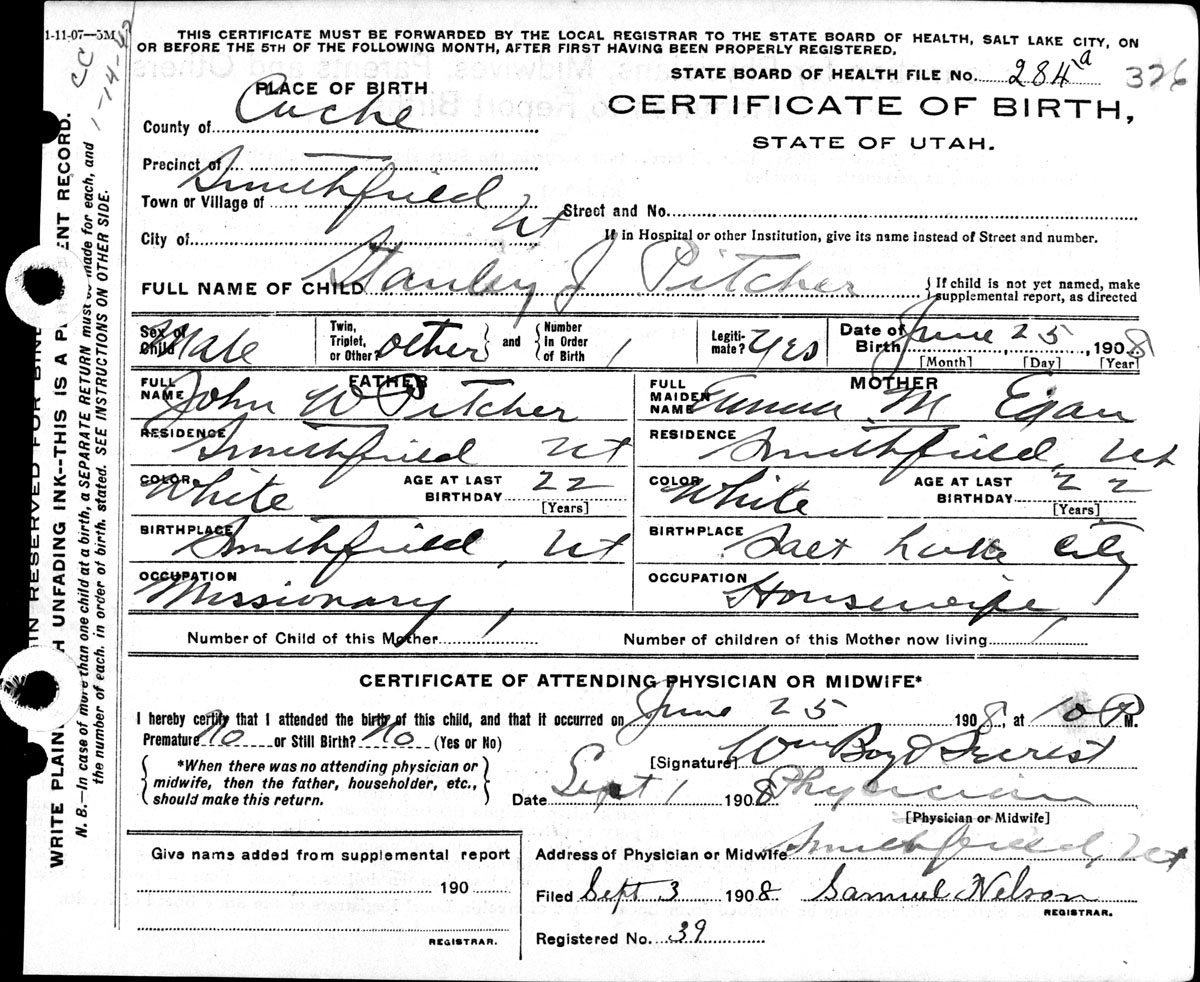 1-11-07—5M
CC
1-14-
THIS CERTIFICATE MUST BE FORWARDED BY THE LOCAL REGISTRAR TO THE STATE BOARD OF HEALTH, SALT LAKE CITY, ON
OR BEFORE THE 5TH OF THE FOLLOWING MONTH, AFTER FIRST HAVING BEEN PROPERLY REGISTERED.
STATE BOARD OF HEALTH FILE No. 284a 326
PLACE OF BIRTH
CERTIFICATE OF BIRTH,
STATE OF UTAH.
County of Cache
Precinct of
Town or Village of Smithfield
City of Ut
Street and No.
If in Hospital or other Institution, give its name instead of Street and number.
FULL NAME OF CHILD Stanley J Pitcher
{If child is not yet named, make
supplemental report, as directed
Sex of Child Male
Twin, Triplet, or Other? other } and { Number in Order of Birth 1
Legiti- mate? Yes
Date of Birth June 25, 1908
[Month] [Day] [Year]
FATHER
FULL NAME John W Pitcher
RESIDENCE Smithfield Ut
COLOR White AGE AT LAST BIRTHDAY 22
[Years]
BIRTHPLACE Smithfield, Ut
OCCUPATION Missionary
MOTHER
FULL MAIDEN NAME M Egan
RESIDENCE Smithfield, Ut
COLOR White AGE AT LAST BIRTHDAY 22
[Years]
BIRTHPLACE Salt Lake City
OCCUPATION Housewife
Number of Child of this Mother 1 Number of children of this Mother now living 1
CERTIFICATE OF ATTENDING PHYSICIAN OR MIDWIFE*
I hereby certify that I attended the birth of this child, and that it occurred on June 25 1908, at 10 P M.
Premature No or Still Birth? No (Yes or No)
*When there was no attending physician or
midwife, then the father, householder, etc.,
should make this return.
[Signature] Wm Boyd
Date Sept 1 1908 Physician
[Physician or Midwife]
Give name added from supplemental report
190
REGISTRAR.
Address of Physician or Midwife Smithfield, Ut
Filed Sept 3 1908 Samuel Nelson
REGISTRAR.
Registered No. 39
IN RESERVED FOR BIND
WRITE PLAIN H UNFADING INK--THIS IS A P ENT RECORD.
N. B.—In case of more than one child at a birth, a SEPARATE RETURN must be made for each, and
the number of each, in order of birth, stated. SEE INSTRUCTIONS ON OTHER SIDE.